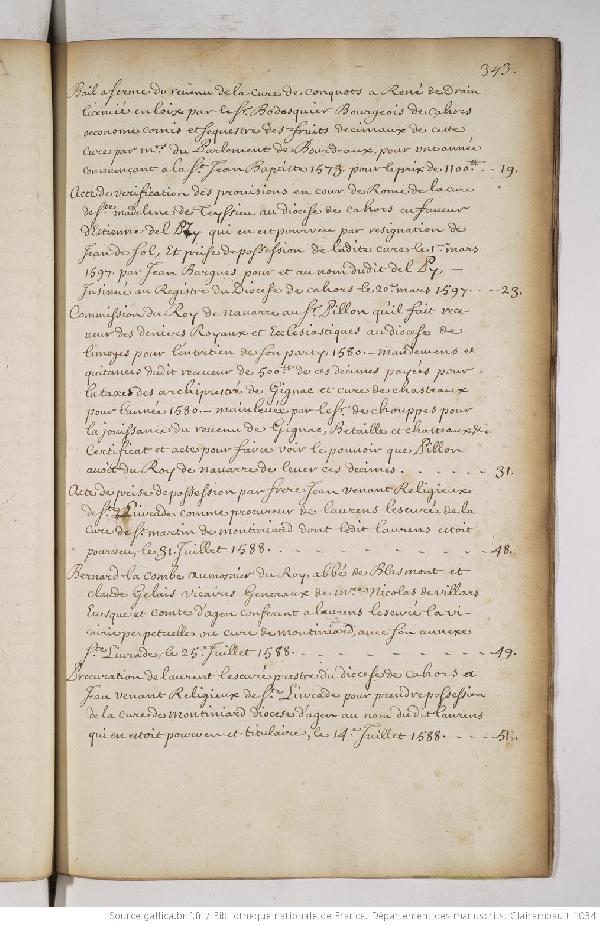 343.
Bail a ferme du revenu de la cure de conquots a René de Drain
licencié en loix par le Sr. Bodosquier Bourgeois de cahors
œconome comis et sequestre des fruits decimaux de cette
cure par mrs. du Parlement de Bourdeaux, pour une année
commençant a la St. Jean Baptiste 1573. pour le prix de 1100tt. - - 19.
Acte de verification des provisions en cour de Rome de la cure
de Ste. madeline de Teyssieu au diocese de cahors en faveur
d'Estienne del Py qui en est pourveu par resignation de
Jean de Sol, Et prise de possession de ladite cure le 1er. mars
1597. par Jean Barques pour et au nom dudit del Py, —
Insinué au Registre du Diocese de cahors le 20e. mars 1597. - - - 23.
Commission du Roy de navarre au Sr. Pillon qu'il fait rece-
veur des deniers Royaux et Ecclesiastiques au diocese de
limoges pour l'entretien de son party 1580. — mandemens et
quitances dudit receveur de 500tt. de ces decimes payées pour
la taxe des archiprestré de Gignac et cure de chasteaux
pour l'année 1580. — mainlevée par le Sr. de chouppes pour
la jouissance du revenu de Gignac, Betaille et chasteaux &c.
Certificat et actes pour faire voir le pouvoir que Pillon
avoit du Roy de navarre de lever ces decimes. - - - - - - 31.
Acte de prise de possession par frere Jean venant Religieux
de Ste. Livrade comme procureur de laurens lescuré de la
cure de St. martin de montiniard dont ledit laurens estoit
pourveu, le 31. Juillet 1588. - - - - - - - - 48.
Bernard la combe aumosnier du Roy, abbé de Blasmont et
claude Gelais vicaires Generaux de mre. Nicolas de villars
Evesque et comte d'agen conferent a laurens lescuré la vi-
cairie perpetuelle ou cure de montiniard, avec son annexe
Ste. Livrade, le 25e. Juillet 1588. - - - - - - - 49.
Procuration de laurent lescuré prestre du diocese de cahors a
Jean venant Religieux de Ste. Livrade pour prendre possession
de la cure de montiniard diocese d'agen au nom dudit laurens
qui en estoit pourveu et titulaire, le 14e. Juillet 1588. - - - - 51.
Source gallica.bnf.fr / Bibliothèque nationale de France. Département des manuscrits. Clairambault 1034